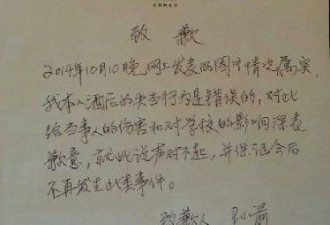 致歉
2014年10月10晚,网上发表的图片情况属实,
我本人酒后的失态行为是错误的,对此
给当事人的伤害和对学校的影响深表
歉意,在此说声对不起,并保证今后
不再发生此类事件。
致歉人